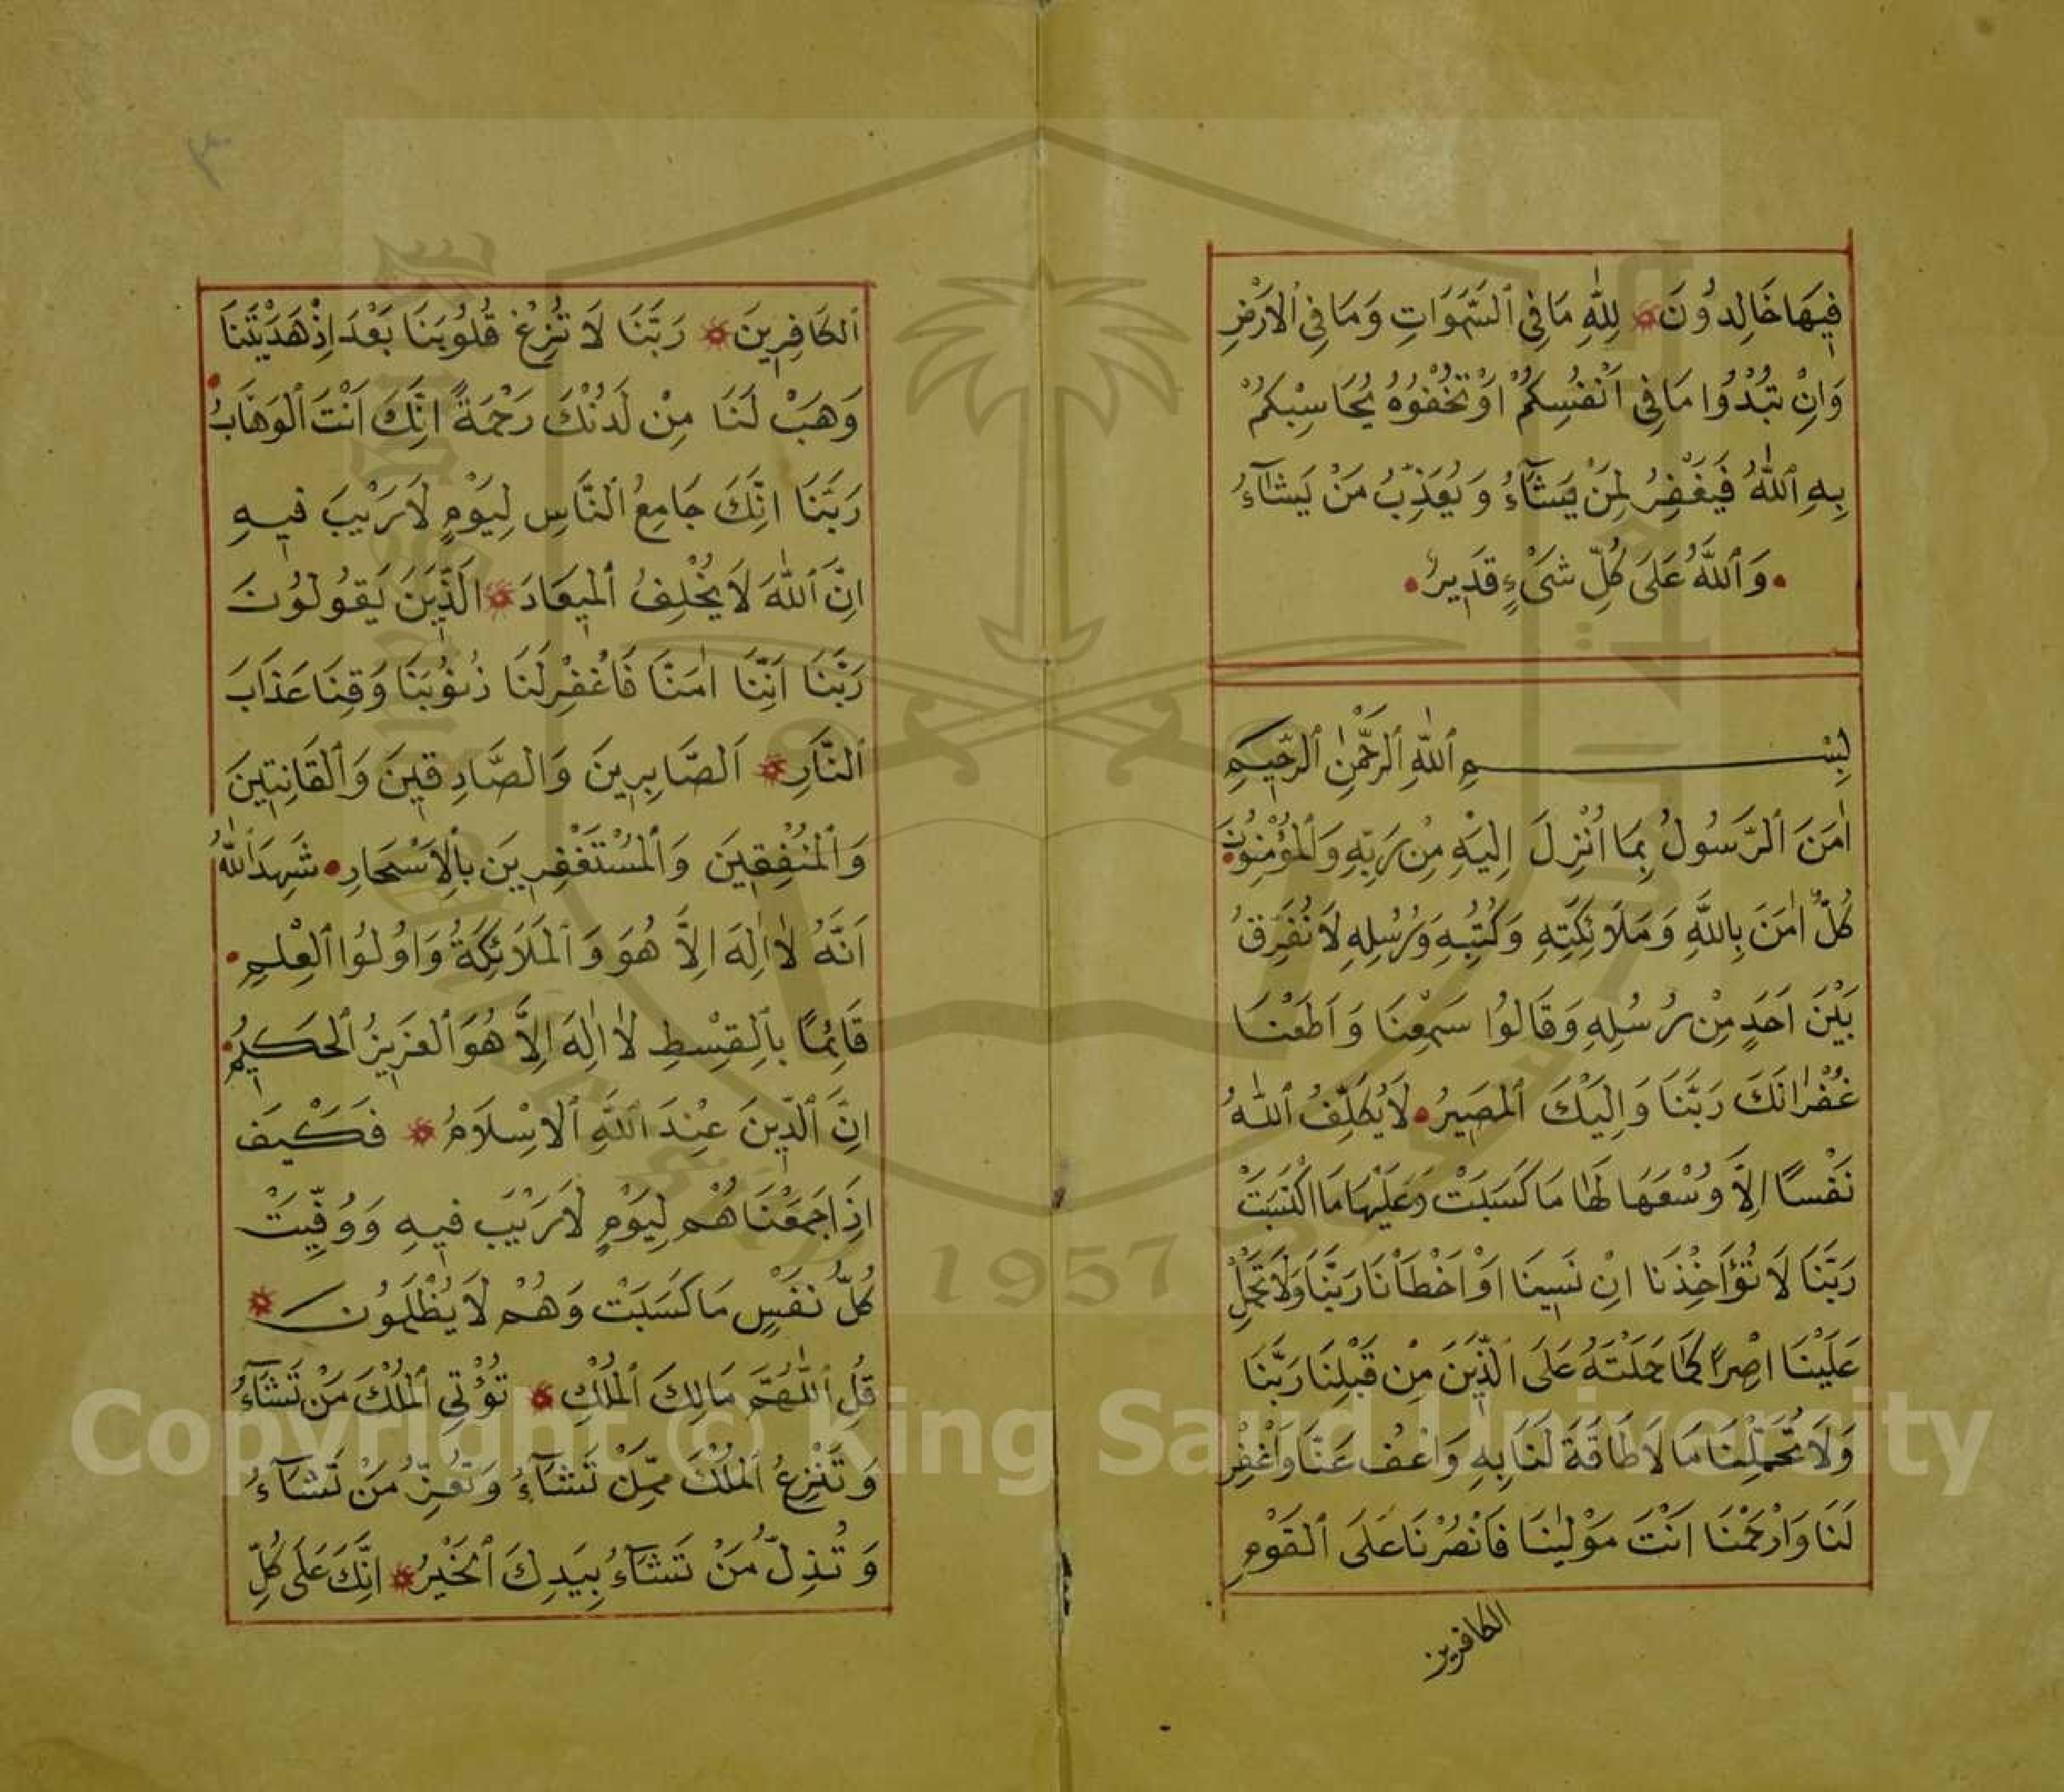 فِيهَا خَالِدُونَ لِلّٰهِ مَا فِي ٱلسَّمَوَاتِ وَمَا فِي ٱلْاَرْضِ
وَاِنْ تُبْدُوا مَا فِي اَنْفُسِكُمْ اَوْ تُخْفُوهُ يُحَاسِبْكُمْ
بِهِ ٱللّٰهُ فَيَغْفِرُ لِمَنْ يَشَآءُ وَيُعَذِّبُ مَنْ يَشَآءُ
وَٱللّٰهُ عَلَى كُلِّ شَىْءٍ قَدِيرٌ
بِسْمِ ٱللّٰهِ ٱلرَّحْمٰنِ ٱلرَّحِيمِ
اٰمَنَ ٱلرَّسُولُ بِمَا اُنْزِلَ اِلَيْهِ مِنْ رَبِّهِ وَٱلْمُؤْمِنُونَ
كُلٌّ اٰمَنَ بِاللّٰهِ وَمَلَائِكَتِهِ وَكُتُبِهِ وَرُسُلِهِ لَا نُفَرِّقُ
بَيْنَ اَحَدٍ مِنْ رُسُلِهِ وَقَالُوا سَمِعْنَا وَاَطَعْنَا
غُفْرَانَكَ رَبَّنَا وَاِلَيْكَ ٱلْمَصِيرُ لَا يُكَلِّفُ ٱللّٰهُ
نَفْسًا اِلَّا وُسْعَهَا لَهَا مَا كَسَبَتْ وَعَلَيْهَا مَا اكْتَسَبَتْ
رَبَّنَا لَا تُؤَاخِذْنَا اِنْ نَسِينَا اَوْ اَخْطَاْنَا رَبَّنَا وَلَا تَحْمِلْ
عَلَيْنَا اِصْرًا كَمَا حَمَلْتَهُ عَلَى الَّذِينَ مِنْ قَبْلِنَا رَبَّنَا
وَلَا تُحَمِّلْنَا مَا لَا طَاقَةَ لَنَا بِهِ وَاعْفُ عَنَّا وَاغْفِرْ
لَنَا وَارْحَمْنَا اَنْتَ مَوْلٰينَا فَانْصُرْنَا عَلَى ٱلْقَوْمِ
الكافرين
٣
ٱلْكَافِرِينَ رَبَّنَا لَا تُزِغْ قُلُوبَنَا بَعْدَ اِذْ هَدَيْتَنَا
وَهَبْ لَنَا مِنْ لَدُنْكَ رَحْمَةً اِنَّكَ اَنْتَ ٱلْوَهَّابُ
رَبَّنَا اِنَّكَ جَامِعُ ٱلنَّاسِ لِيَوْمٍ لَا رَيْبَ فِيهِ
اِنَّ ٱللّٰهَ لَا يُخْلِفُ ٱلْمِيعَادَ الَّذِينَ يَقُولُونَ
رَبَّنَا اِنَّنَا اٰمَنَّا فَاغْفِرْ لَنَا ذُنُوبَنَا وَقِنَا عَذَابَ
ٱلنَّارِ اَلصَّابِرِينَ وَالصَّادِقِينَ وَٱلْقَانِتِينَ
وَٱلْمُنْفِقِينَ وَٱلْمُسْتَغْفِرِينَ بِٱلْاَسْحَارِ شَهِدَ ٱللّٰهُ
اَنَّهُ لَا اِلٰهَ اِلَّا هُوَ وَٱلْمَلَائِكَةُ وَاُولُوا ٱلْعِلْمِ
قَائِمًا بِٱلْقِسْطِ لَا اِلٰهَ اِلَّا هُوَ ٱلْعَزِيزُ ٱلْحَكِيمُ
اِنَّ ٱلدِّينَ عِنْدَ ٱللّٰهِ ٱلْاِسْلَامُ فَكَيْفَ
اِذَا جَمَعْنَاهُمْ لِيَوْمٍ لَا رَيْبَ فِيهِ وَوُفِّيَتْ
كُلُّ نَفْسٍ مَا كَسَبَتْ وَهُمْ لَا يُظْلَمُونَ
قُلِ ٱللّٰهُمَّ مَالِكَ ٱلْمُلْكِ تُؤْتِي ٱلْمُلْكَ مَنْ تَشَآءُ
وَتَنْزِعُ ٱلْمُلْكَ مِمَّنْ تَشَآءُ وَتُعِزُّ مَنْ تَشَآءُ
وَتُذِلُّ مَنْ تَشَآءُ بِيَدِكَ ٱلْخَيْرُ اِنَّكَ عَلَى كُلِّ
1957
Copyright © King Saud University